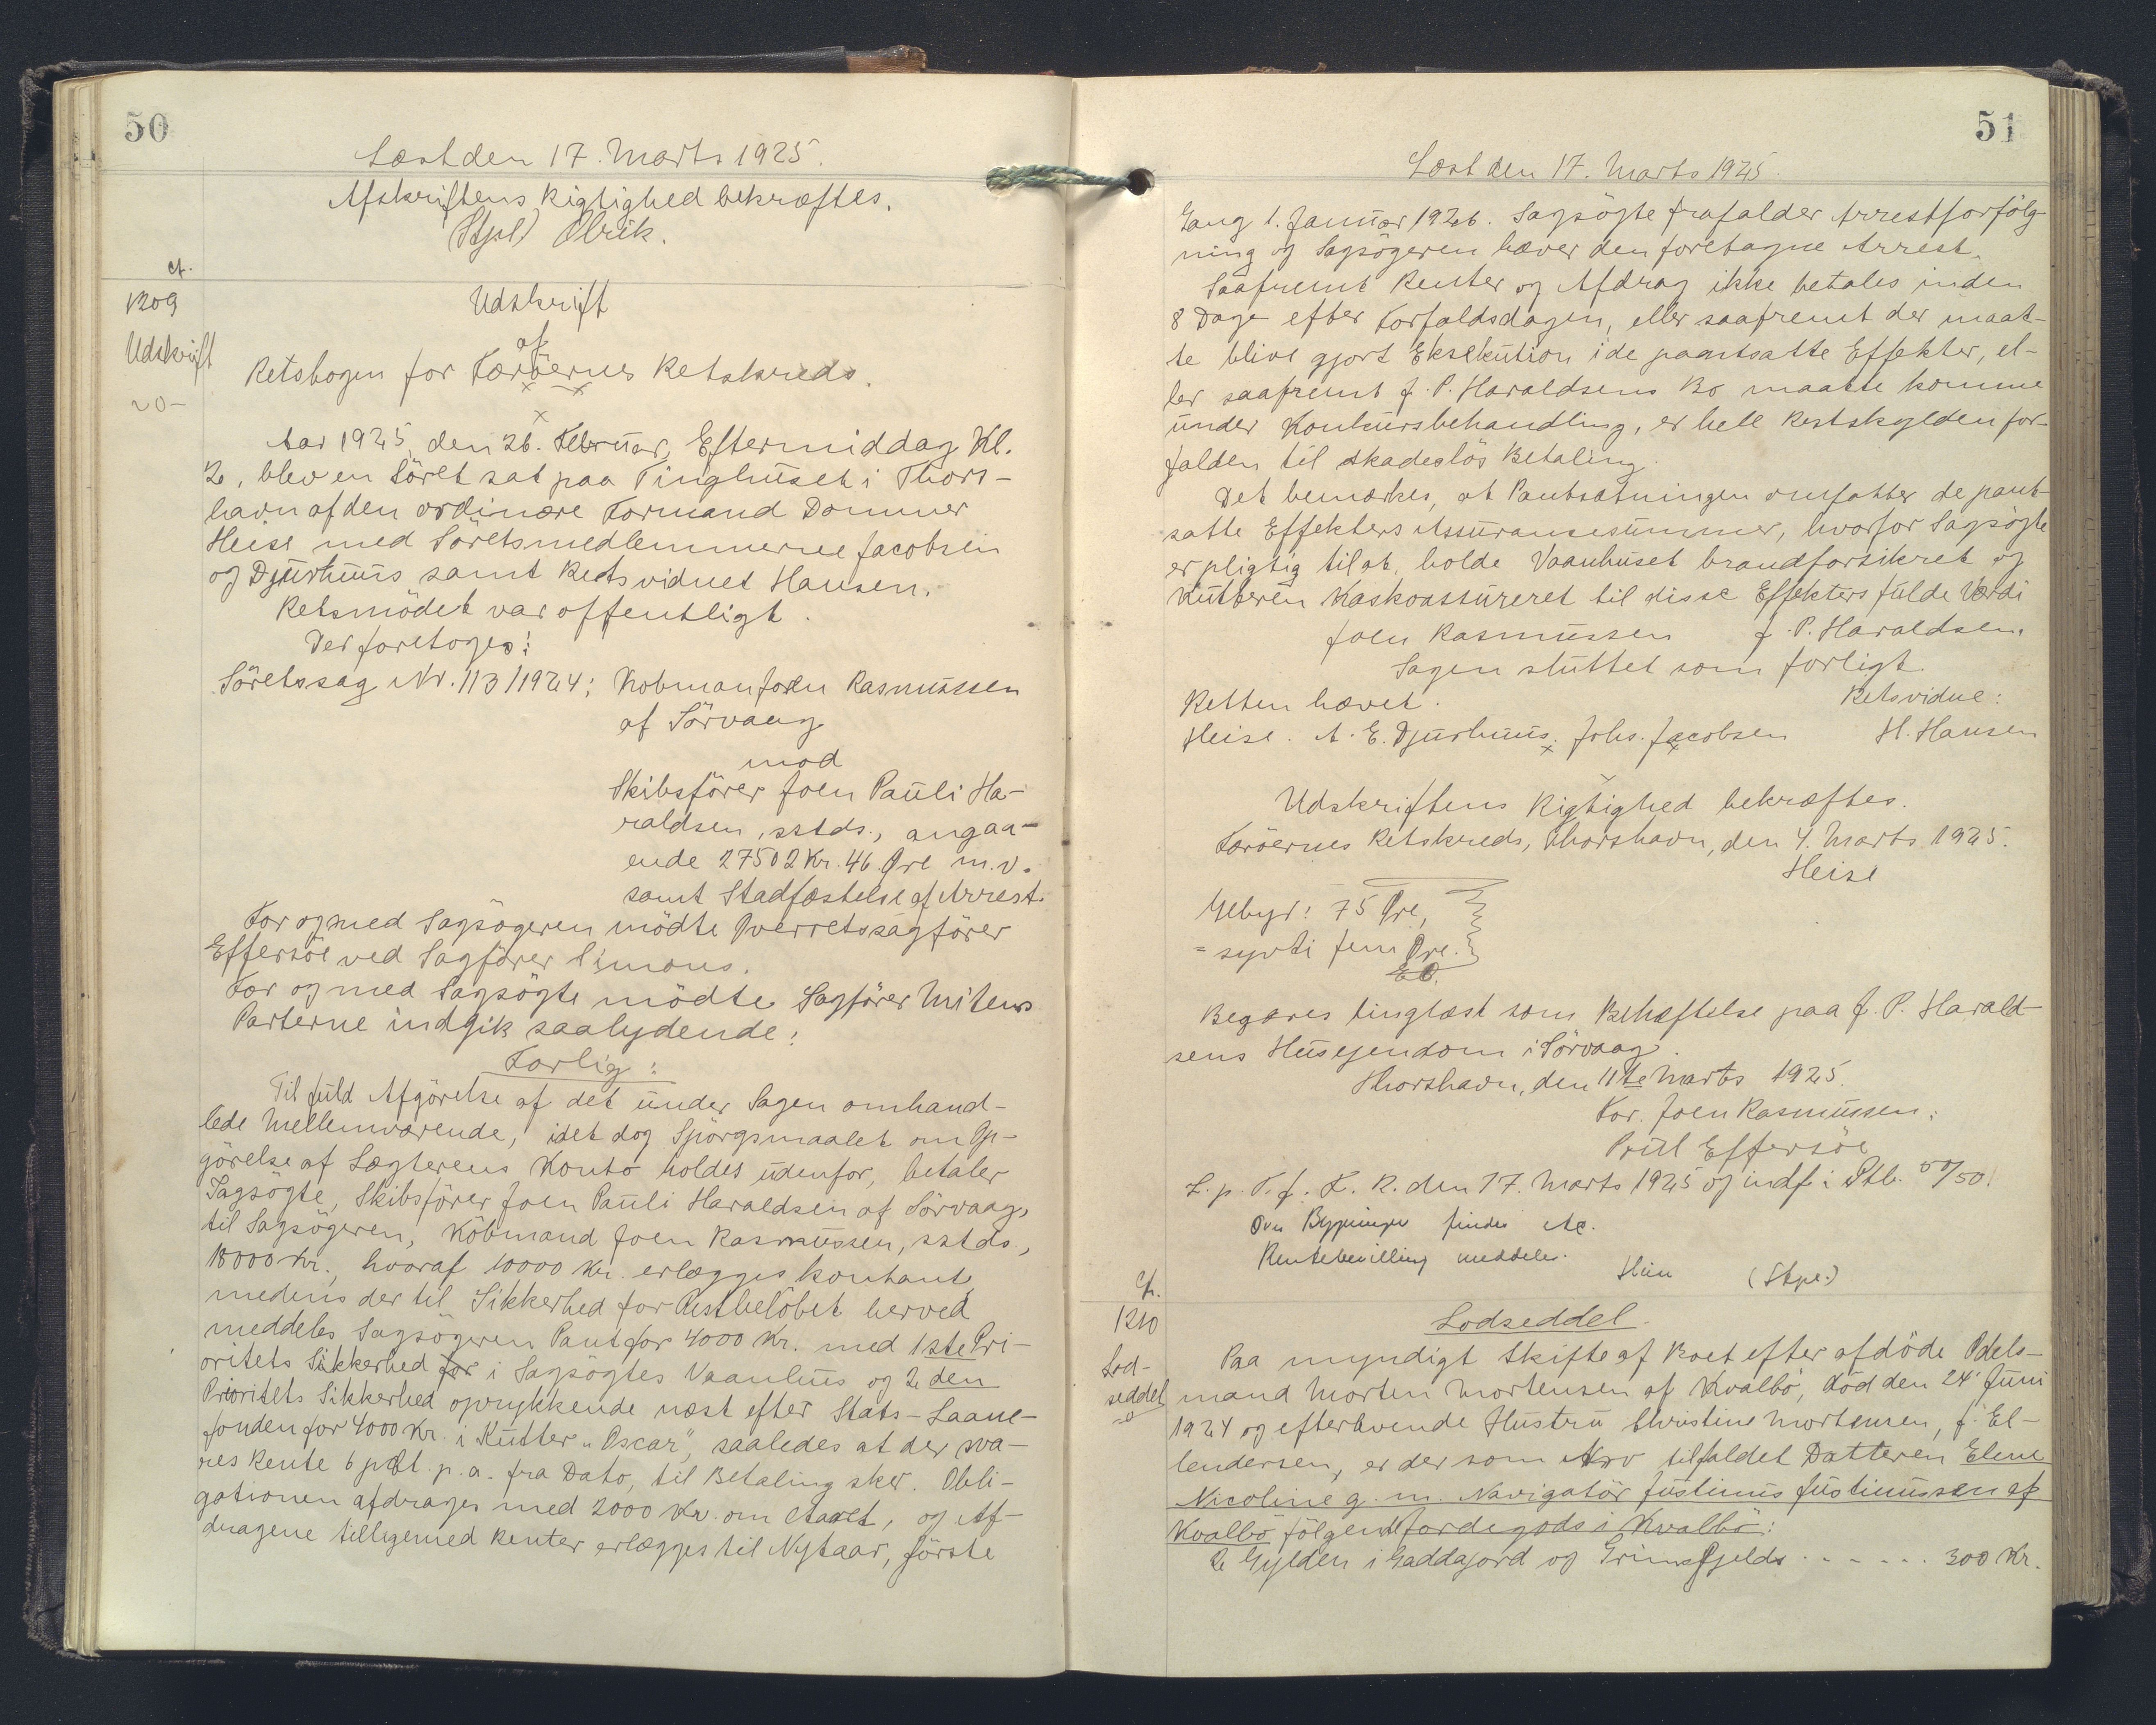 50
Læst den 17. Marts 1925.
Afskriftens Rigtighed bekræftes.
(Stpl) Olrik.
ct.
1209
Udskrift
20-
Udskrift
af
Retsbogen for Færöernes Retskreds.
Aar 1925, den 26. Februar, Eftermiddag Kl.
2, blev en Söret sat paa Tinghuset i Thors-
havn af den ordinære Formand Dommer
Heise med Söretsmedlemmerne Jacobsen
og Djurhuus samt Retsvidnet Hansen.
Retsmödet var offentligt.
Der foretoges:
Söretssag Nr. 113/1924: Kobman Joen Rasmussen
af Sörvaag
mod
Skibsförer Joen Pauli Ha-
raldsen, sstds., angaa-
ende 27502 Kr. 46 Øre m.v.
samt Stadfæstelse af Arrest.
For og med Sagsögeren mödte Overretssagförer
Effersöe ved Sagförer Simons.
For og med Sagsögte mödte Sagförer Mitens
Parterne indgik saalydende:
Forlig:
Til fuld Afgörelse af det under Sagen omhand-
lede Mellemværende, idet dog Spörgsmaalet om Op-
görelse af Sægterens Konto holdes udenfor, betaler
Sagsögte, Skibsförer Joen Pauli Haraldsen af Sörvaag,
til Sagsögeren, Köbmand Joen Rasmussen, sstds.,
18000 Kr., hvoraf 10000 Kr. erlægges kontant,
medens der til Sikkerhed for Restbelöbet herved
meddeles Sagsögeren Pant for 4000 Kr. med 1ste Pri-
oritets Sikkerhed for i Sagsögtes Vaanhus og 2den
Prioritets Sikkerhed oprykkende næst efter Stats-Laane-
fonden for 4000 Kr. i Kutter "Oscar", saaledes at der sva-
res Rente 6 pCt. p.a. fra Dato, til Betaling sker. Obli-
gationen afdrages med 2000 Kr. om Aaret, og Af-
dragene tilligemed Renter erlægges til Nytaar, förste
51
Læst den 17. Marts 1925.
Gang 1. Januar 1926. Sagsögte frafalder Arrestforfölg-
ning og Sagsögeren hæver den foretagne Arrest.
Saafremt Renter og Afdrag ikke betales inden
8 Dage efter Forfaldsdagen, eller saafremt der maat-
te blive gjort Eksekution i de pantsatte Effekter, el-
ler saafremt J. P. Haraldsens Bo maatte komme
under Konkursbehandling, er hele Restskylden for-
falden til skadeslös Betaling.
Det bemærkes, at Pantsætningen omfatter de pant-
satte Effekters Assurancesummer, hvorfor Sagsögte
er pligtig til at holde Vaanhuset brandforsikret og
Kutteren Kaskoassureret til disse Effekters fulde Værdi
Joen Rasmussen J. P. Haraldsen.
Sagen sluttet som forligt.
Retten hævet. Retsvidne:
Heise. A. E. Djurhuus. Johs. Jacobsen H. Hansen
Udskriftens Rigtighed bekræftes.
Færöernes Retskreds, Thorshavn, den 4. Marts 1925.
Heise
Gebyr: 75 Øre,
= syvti fem Øre.
E.O.
Begæres tinglæst som Behæftelse paa J. P. Harald-
sens Husejendom i Sörvaag.
Thorshavn, den 11te Marts 1925.
For Joen Rasmussen:
Poul Effersöe
L. p. T. f. F. R. den 17. Marts 1925 og indf. i Ptb. 50/50.
Om Bygninger findes
Rentebevilling meddeles.
Heise (Stpl.)
ct.
1210
Lod-
seddel
Lodseddel.
Paa myndigt Skifte af Boet efter afdöde Odels-
mand Morten Mortensen af Kvalbö, död den 24' Juni
1924 og efterlevende Hustru Christine Mortensen, f. El-
lendersen, er der som Arv tilfaldet Datteren Elene
Nicoline g. m. Navigatör Justinus Justinussen af
Kvalbö fölgende Jordegods i Kvalbö:
2 Gylden i Gaddagord og Grimsfjelds . - - - . . . 300 Kr.